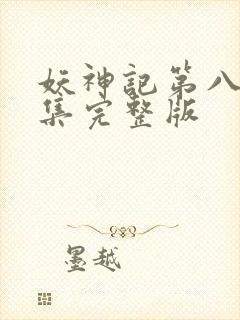 妖神記第八
集完整版
墨越